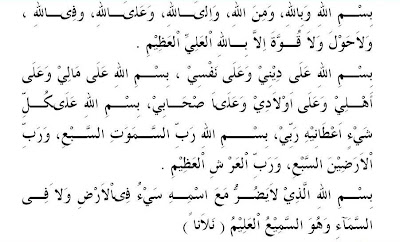 بِسْمِ اللهِ وَبِاللهِ، وَمِنَ اللهِ، وَاِلَى اللهِ، وَعَلَى اللهِ، وَفِى اللهِ ،
وَلَاحَوْلَ وَلَا قُـوَّةَ اِلَّا بِاللهِ الْعَلِيِّ الْعَظِيْمِ .
بِسْمِ اللهِ عَلَى دِيْنِيْ وَعَلَى نَفْسِيْ ، بِسْمِ اللهِ عَلَى مَالِيْ وَعَلَى
اَهْلِيْ وَعَلَى اَوْلَادِيْ وَعَلَى اَصْحَابِيْ، بِسْمِ اللهِ عَلَى كُلِّ
شَيْءٍ اَعْطَانِيْهِ رَبِّيْ، بِسْمِ اللهِ رَبِّ السَّمٰوٰتِ السَّبْعِ، وَرَبِّ
الْاَرَضِيْنَ السَّبْعِ، وَرَبِّ الْعَرْشِ الْعَظِيْمِ .
بِسْمِ اللهِ الَّذِيْ لَايَضُرُّ مَعَ اسْمِهِ شَيْءٌ فِى الْاَرْضِ وَلَا فِى
السَّمَآءِ وَهُوَ السَّمِيْعُ الْعَلِيْمُ ( ثَلَاثًا )